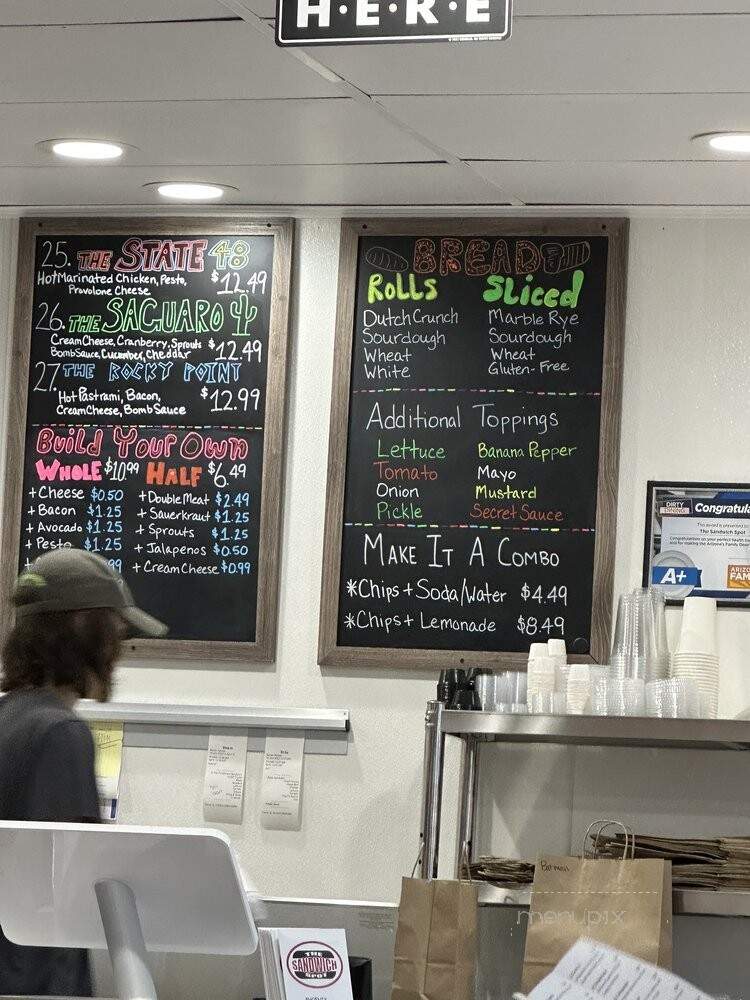 H·E·R·E
25. THE STATE 48
Hot Marinated Chicken, Pesto, $12.49
Provolone Cheese
26. THE SAGUARO
Cream Cheese, Cranberry, Sprouts $12.49
Bomb Sauce, Cucumber, Cheddar
27. THE ROCKY POINT
Hot Pastrami, Bacon, $12.99
Cream Cheese, Bomb Sauce
Build Your Own
WHOLE $10.99 HALF $6.49
+Cheese $0.50
+Bacon $1.25
+Avocado $1.25
+Pesto $1.25
99
+Double Meat $2.49
+Sauerkraut $1.25
+Sprouts $1.25
+Jalapenos $0.50
+Cream Cheese $0.99
BREAD
Rolls
Dutch Crunch
Sourdough
Wheat
White
Sliced
Marble Rye
Sourdough
Wheat
Gluten-Free
Additional Toppings
Lettuce
Tomato
Onion
Pickle
Banana Pepper
Mayo
Mustard
Secret Sauce
MAKE IT A COMBO
*Chips + Soda/Water $4.49
*Chips + Lemonade $8.49
DIRTY DINING
Congratula
The Sandwich Spot
A+
ARIZO
FAM
THE
SANDWICH
SPOT
menupix